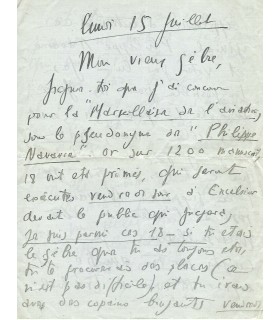 lundi 15 juillet
Mon vieux zèbre,
figure toi que j'ai concouru
pour la "Marseillaise de l'aviation"
sous le pseudonyme de "Philippe
Navarre". or sur 1200 manuscrits,
18 ont été primés, qui seront
exécutés vendredi soir à Excelsior
devant le public qui jugera,
Je suis parmi ces 18 - si tu es
le zèbre que tu as toujours été,
tu te procureras des places (ce
n'est pas difficile) et tu iras
avec des copains bruyants vendredi